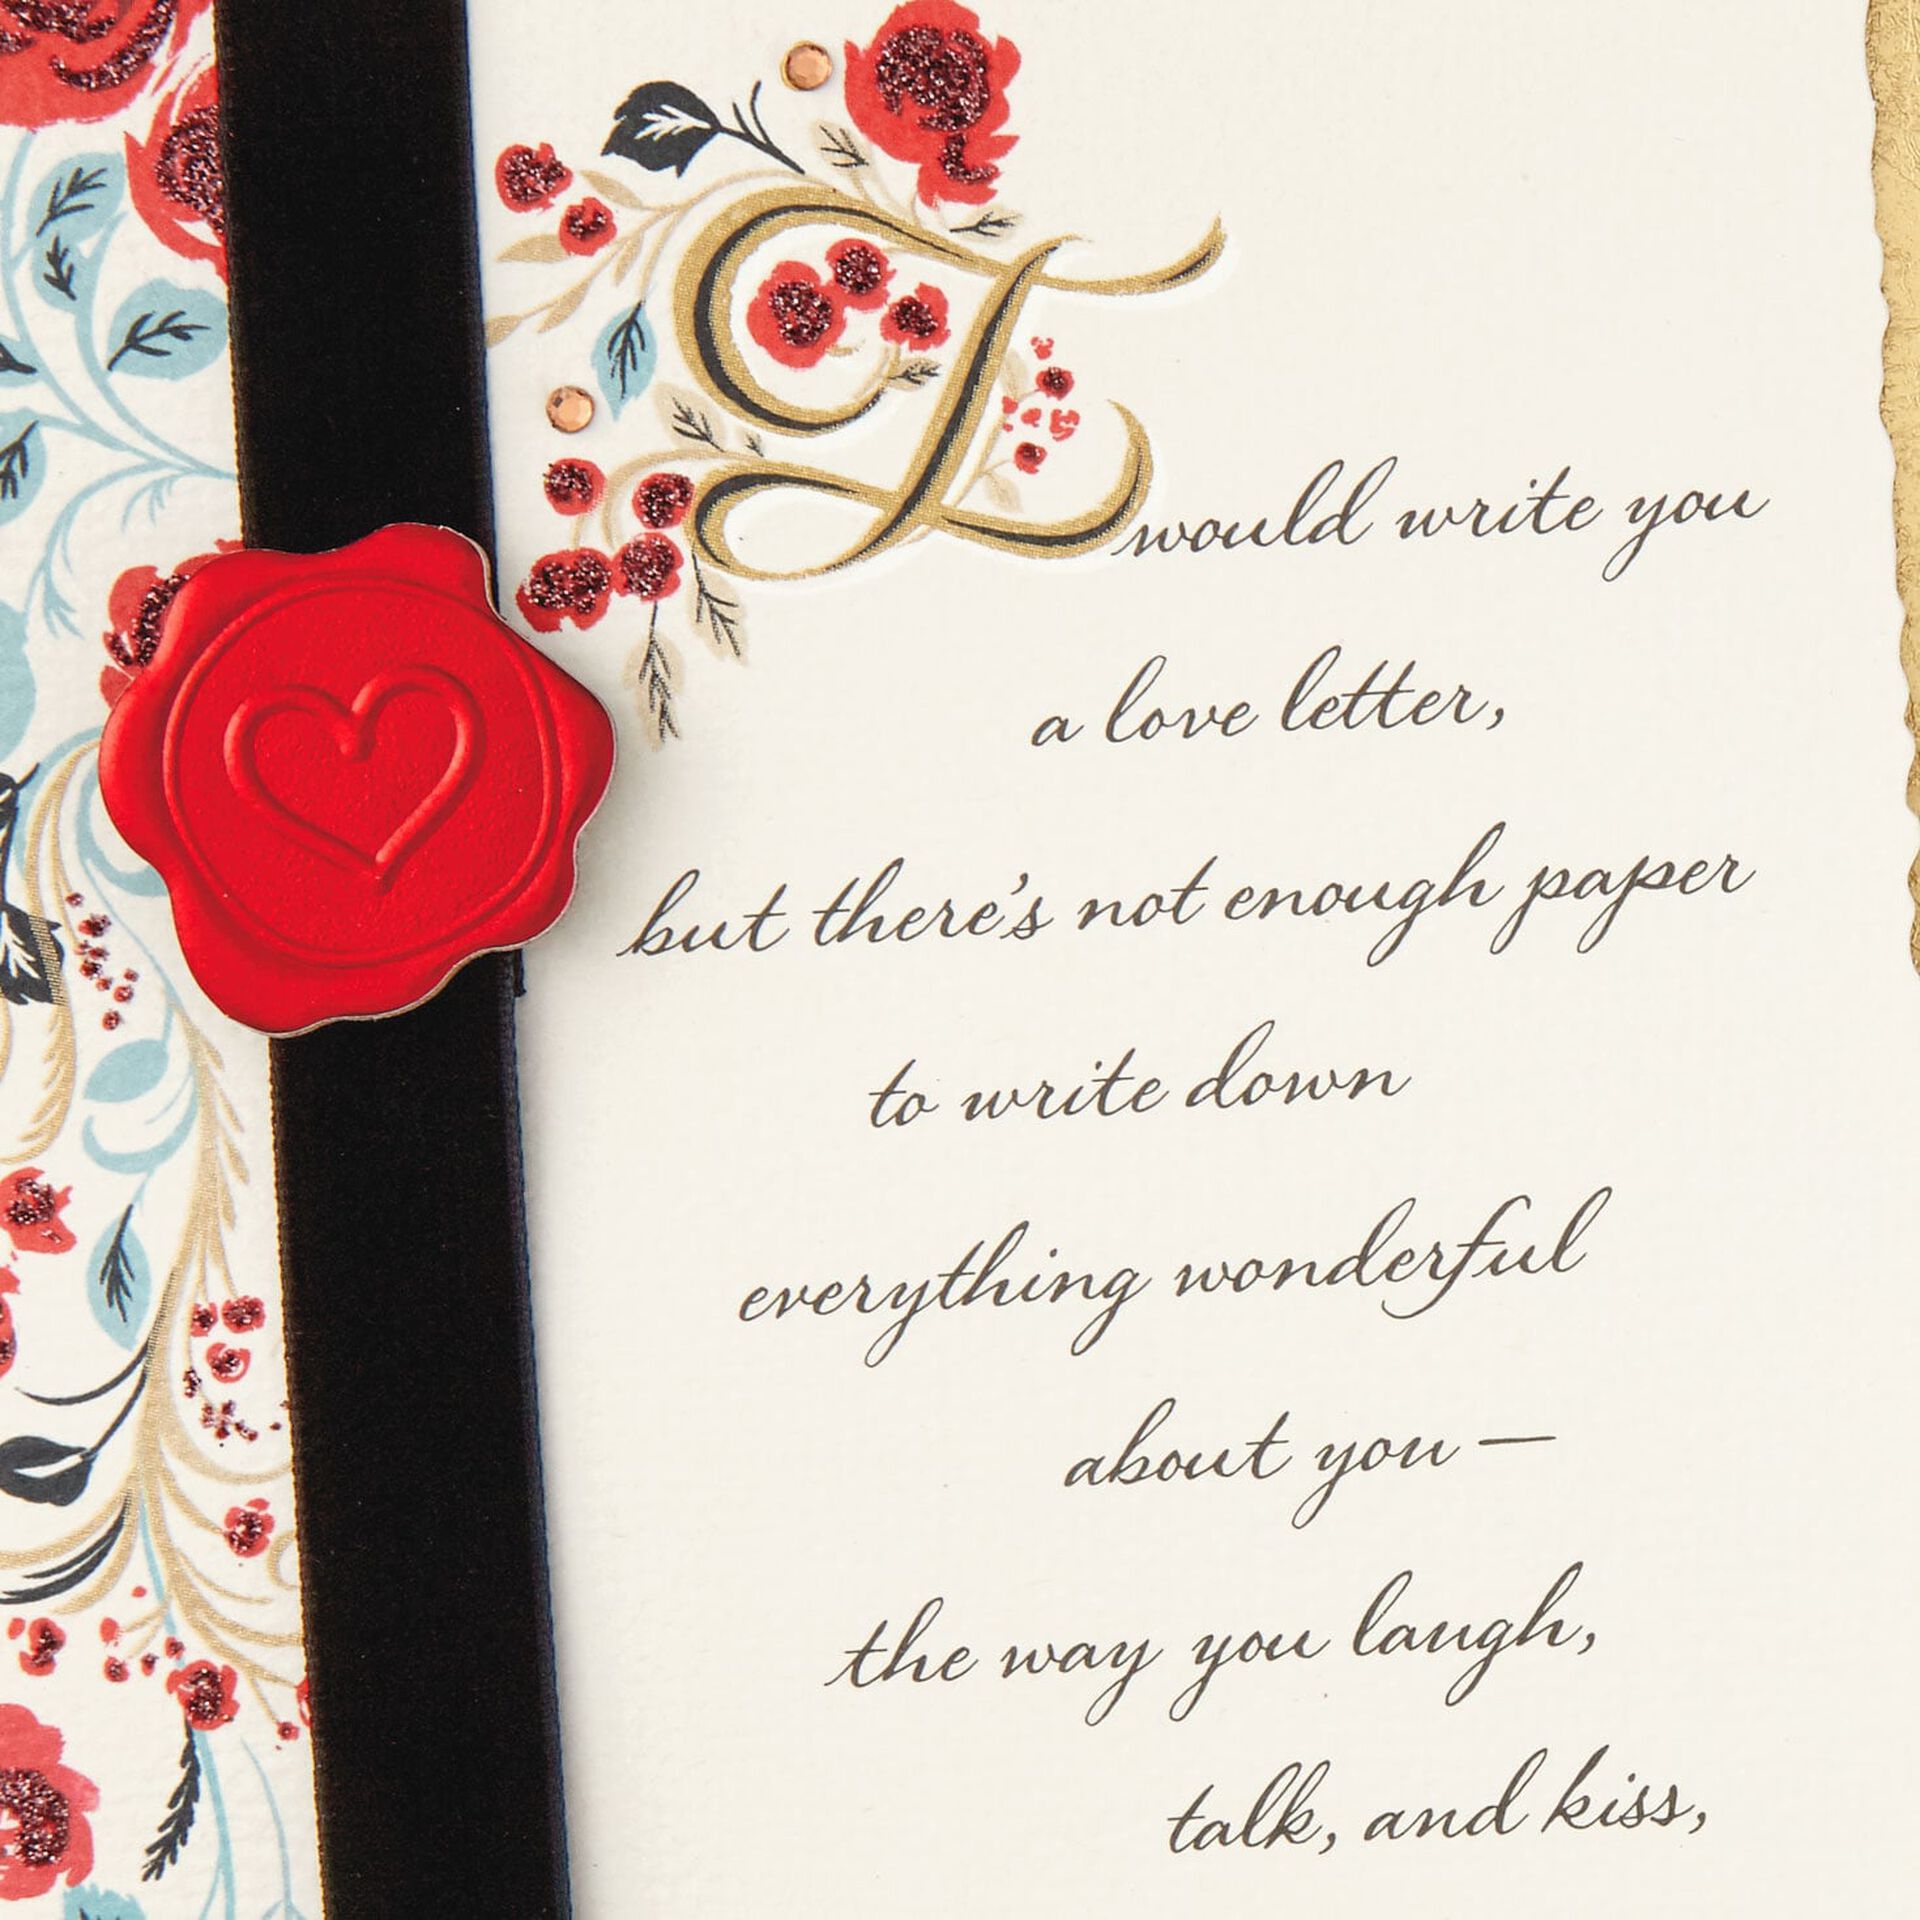 I would write you
a love letter,
but there's not enough paper
to write down
everything wonderful
about you —
the way you laugh,
talk, and kiss,